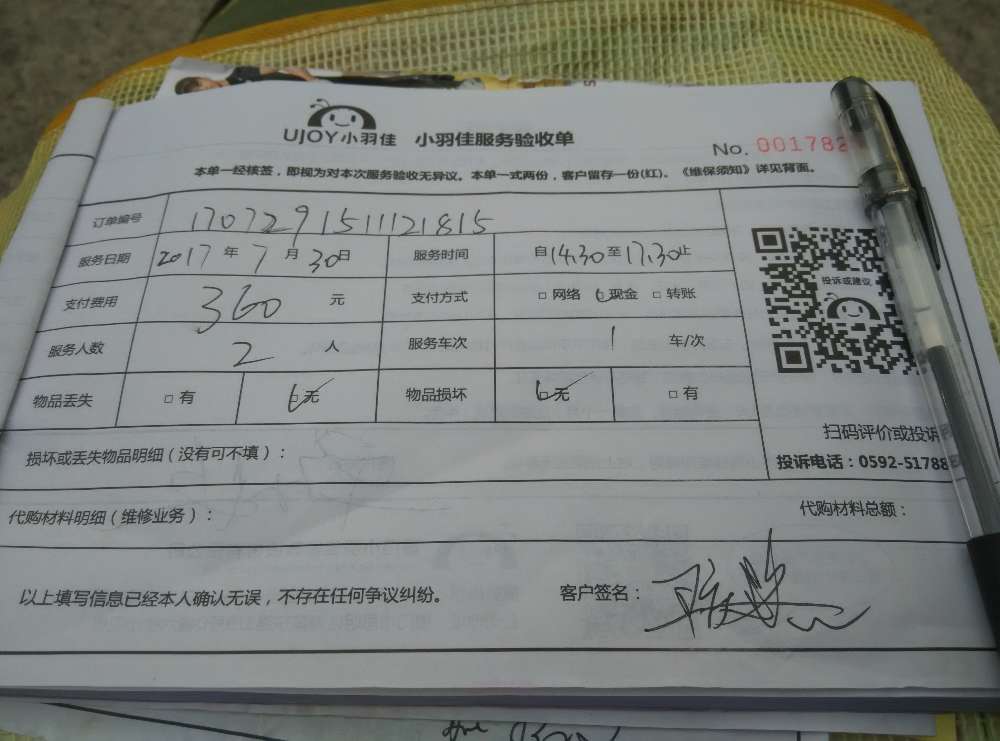 UJOY小羽佳 小羽佳服务验收单
No. 001782
本单一经核签,即视为对本次服务验收无异议。本单一式两份,客户留存一份(红)。《维保须知》详见背面。
订单编号 1707291511121815
服务日期 2017年7月30日 服务时间 自14.30至17.30止
支付费用 360 元 支付方式 □网络 □现金 □转账
服务人数 2 人 服务车次 1 车/次
物品丢失 □有 □无 物品损坏 □无 □有
投诉或建议
扫码评价或投诉
投诉电话:0592-51788
损坏或丢失物品明细(没有可不填):
代购材料明细(维修业务): 代购材料总额:
以上填写信息已经本人确认无误,不存在任何争议纠纷。 客户签名: